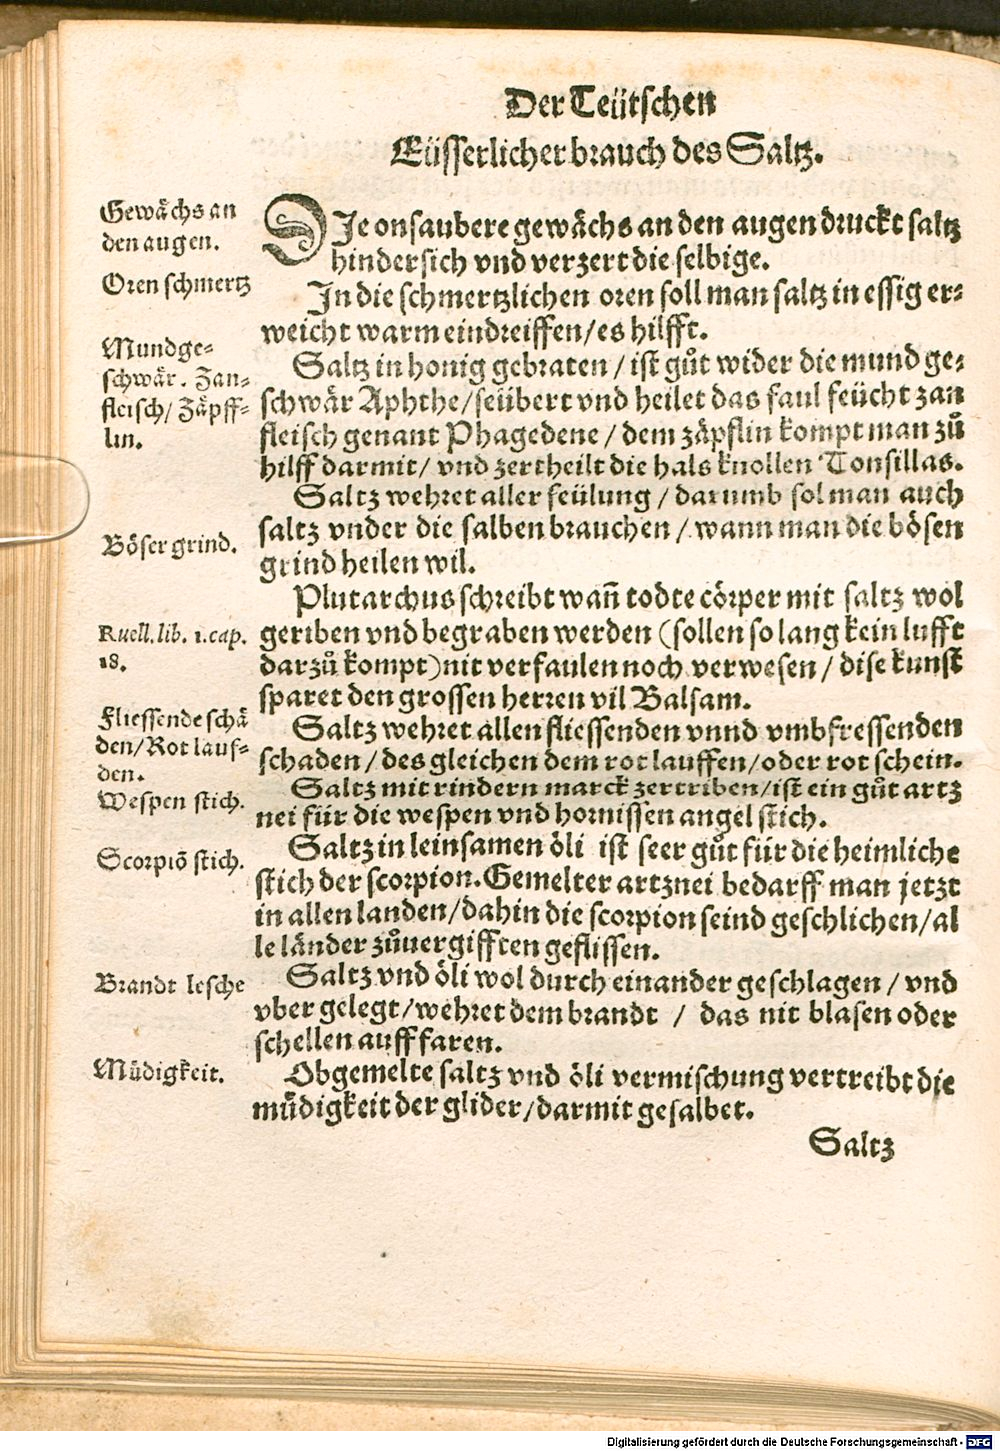 Der Teütschen
Eüsserlicher brauch des Saltz.
Gewächs an
den augen.
DIe onsaubere gewächs an den augen druckt saltz
hindersich vnd verzert die selbige.
Oren schmertz
In die schmertzlichen oren soll man saltz in essig er-
weicht warm eindreiffen/es hilfft.
Mundge-
schwär. Zan-
fleisch/ Zäpff-
lin.
Saltz in honig gebraten / ist gůt wider die mund ge-
schwär Aphthe/seübert vnd heilet das faul feücht zan
fleisch genant Phagedene / dem zäpflin kompt man zů
hilff darmit/ vnd zertheilt die hals knollen Tonsillas.
Saltz wehret aller feülung / darumb sol man auch
saltz vnder die salben brauchen / wann man die bösen
grind heilen wil.
Böser grind.
Plutarchus schreibt wañ todte cörper mit saltz wol
geriben vnd begraben werden (sollen so lang kein lufft
darzů kompt) nit verfaulen noch verwesen / dise kunst
sparet den grossen herren vil Balsam.
Ruell. lib. 1. cap.
18.
Fliessende schä
den/Rot lauf-
den.
Saltz wehret allen fliessenden vnnd vmbfressenden
schaden / des gleichen dem rot lauffen/oder rot schein.
Wespen stich.
Saltz mit rindern marck zertriben/ist ein gůt artz
nei für die wespen vnd hornissen angel stich.
Scorpiō stich.
Saltz in leinsamen öli ist seer gůt für die heimliche
stich der scorpion. Gemelter artznei bedarff man jetzt
in allen landen/dahin die scorpion seind geschlichen/al
le länder zůuergifften geflissen.
Brandt lesche
Saltz vnd öli wol durch einander geschlagen / vnd
vber gelegt/wehret dem brandt / das nit blasen oder
schellen auff faren.
Müdigkeit.
Obgemelte saltz vnd öli vermischung vertreibt die
müdigkeit der glider/darmit gesalbet.
Saltz
Digitalisierung gefördert durch die Deutsche Forschungsgemeinschaft - DFG